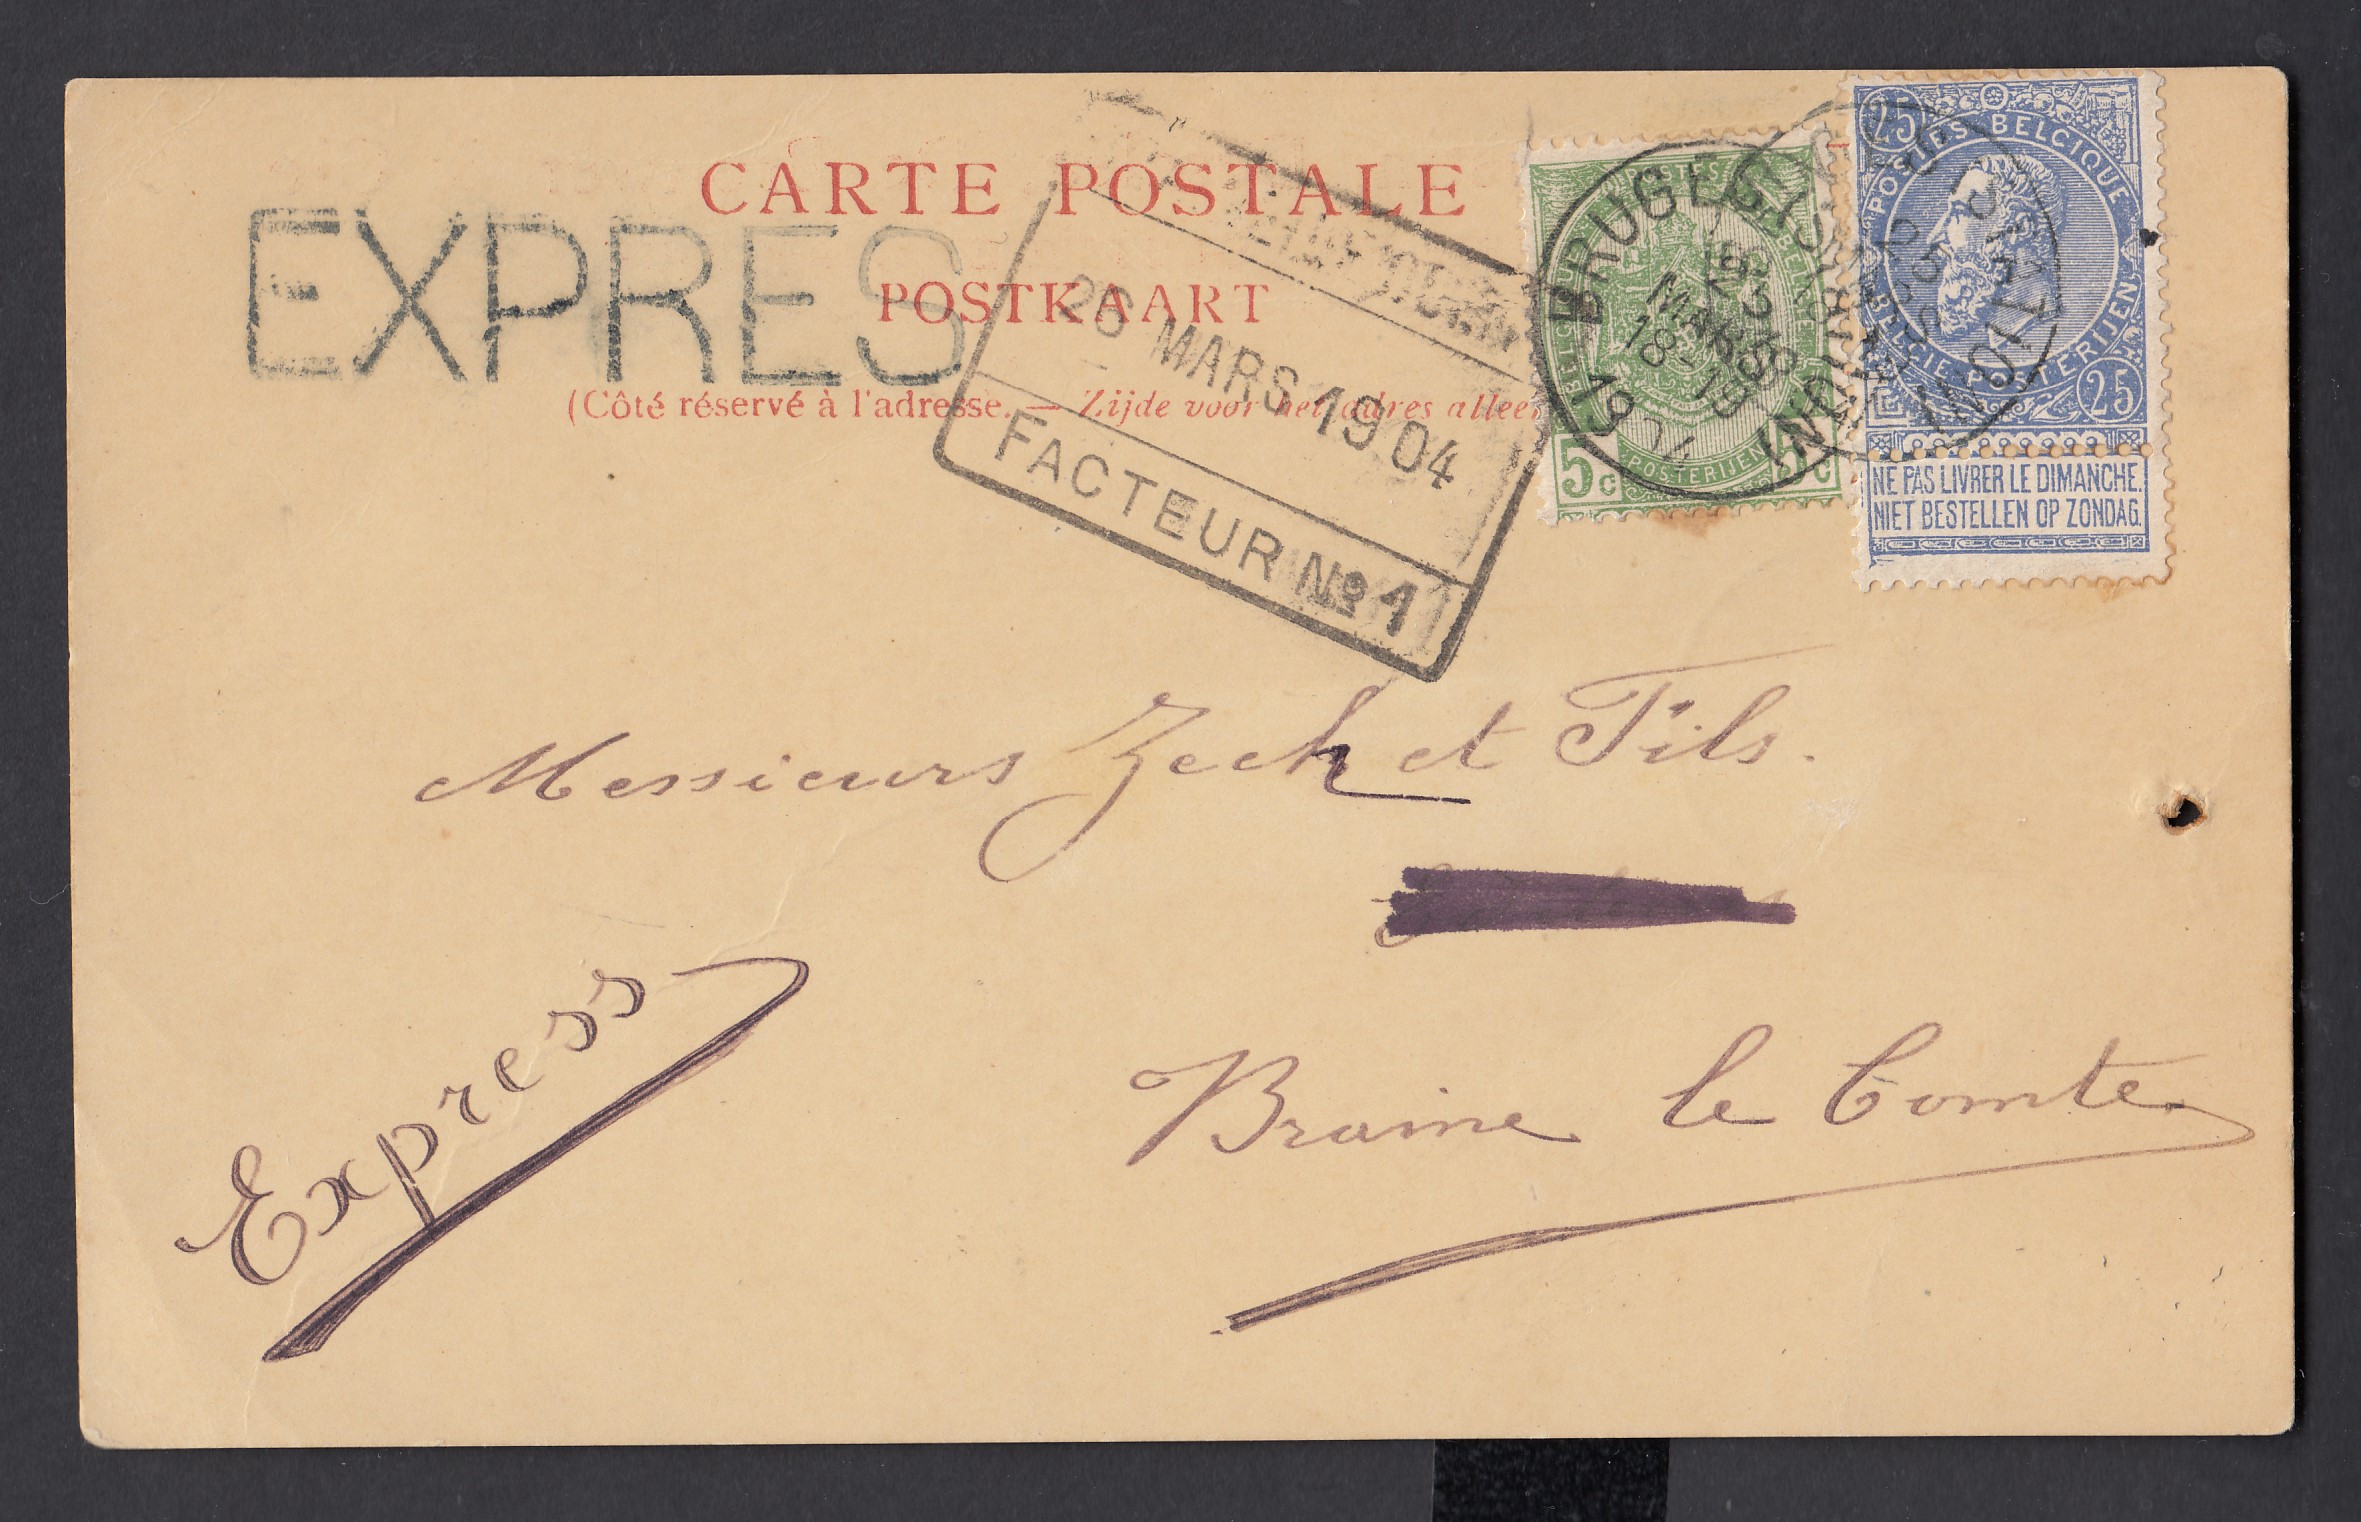 CARTE POSTALE
EXPRES
POSTKAART
(Côté réservé à l'adresse. — Zijde voor het adres alleen
26 MARS 1904
FACTEUR No 1
POSTES
5 c 5 c
POSTERIJEN
BRUGES
23
MARS
18-19
25
POSTES BELGIQUE
BELGIE POSTERIJEN
25
NE PAS LIVRER LE DIMANCHE.
NIET BESTELLEN OP ZONDAG.
Messieurs Zech et Fils.
Express
Braine le Comte